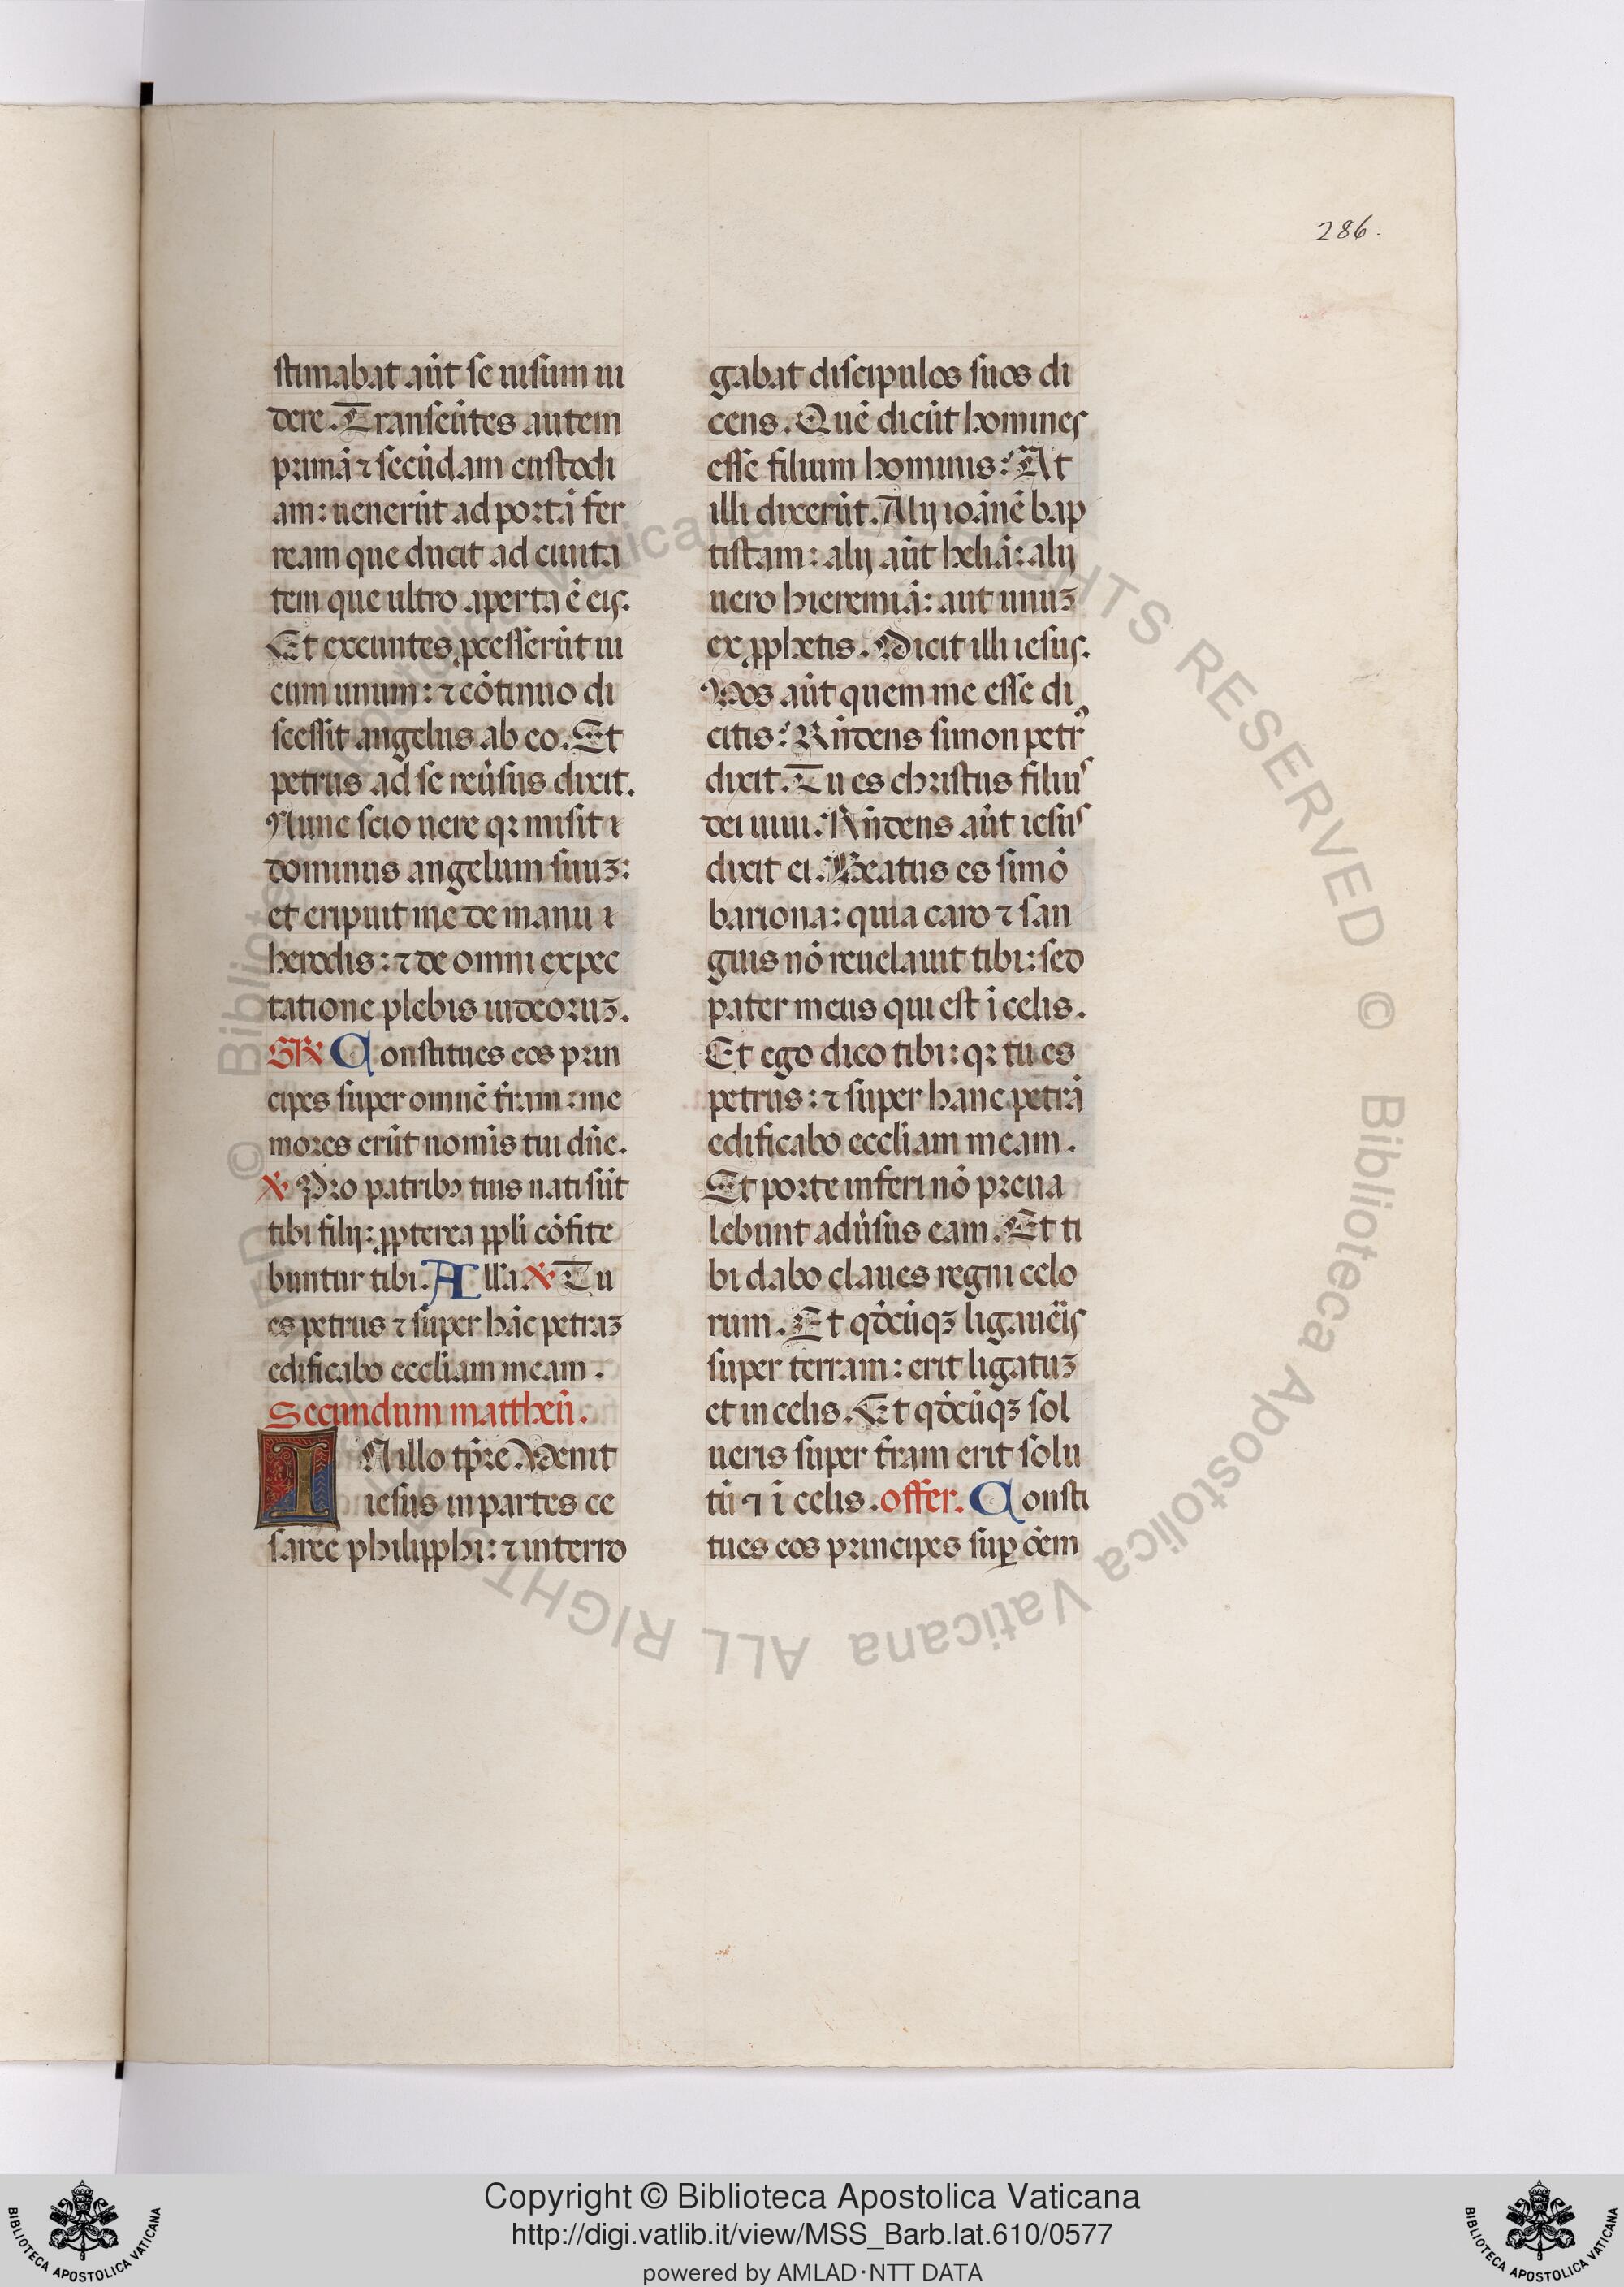 286.
stimabat aūt se uisum ui
dere. Transeūtes autem
primā ⁊ secūdam custodi
am: uenerūt ad portā fer
ream que ducit ad ciuita
tem que ultro aperta ē eis.
Et exeuntes ꝓcesserūt ui
cum unum: ⁊ cōtinuo di
scessit angelus ab eo. Et
petrus ad se reũsus dixit.
Nunc scio uere qꝛ misit
dominus angelum suuꝫ:
et eripuit me de manu
herodis: ⁊ de omni expec
tatione plebis iudeoruꝫ.
GR Constitues eos prin
cipes super omnē t̄ram: me
mores erūt nomīs tui dn̄e.
℣ Pro patribꝰ tuis nati sūt
tibi filij: ꝓpterea ppl̄i cōfite
buntur tibi. All̄a. ℣ Tu
es petrus ⁊ super hāc petraꝫ
edificabo eccl̄iam meam.
Secundum mattheū.
IN illo tp̄re Venit
iesus in partes ce
saree philipphi: ⁊ interro
gabat discipulos suos di
cens. Quē dicūt homines
esse filium hominis? At
illi dixerūt. Alij ioānē bap
tistam: alij aūt heliā: alij
uero hieremiā: aut unuꝫ
ex ꝓphetis. Dicit illi iesus.
Vos aūt quem me esse di
citis? Rn̄dens simon petrꝰ
dixit. Tu es christus filius
dei uiui. Rn̄dens aūt iesus
dixit ei. Beatus es simō
bariona: quia caro ⁊ san
guis nō reuelauit tibi: sed
pater meus qui est ī celis.
Et ego dico tibi: qꝛ tu es
petrus: ⁊ super hanc petrā
edificabo eccl̄iam meam.
Et porte inferi nō preua
lebunt adũsus eam. Et ti
bi dabo claues regni celo
rum. Et qd̄cūqꝫ ligauēis
super terram: erit ligatuꝫ
et in celis. Et qd̄cūqꝫ sol
ueris super t̄ram erit solu
tū ⁊ ī celis. offer. Consti
tues eos principes suꝑ oēm
Copyright © Biblioteca Apostolica Vaticana
http://digi.vatlib.it/view/MSS_Barb.lat.610/0577
powered by AMLAD·NTT DATA
BIBLIOTECA APOSTOLICA VATICANA
BIBLIOTECA APOSTOLICA VATICANA
© Biblioteca Apostolica Vaticana ALL RIGHTS RESERVED © Biblioteca Apostolica Vaticana ALL RIGHTS RESERVED